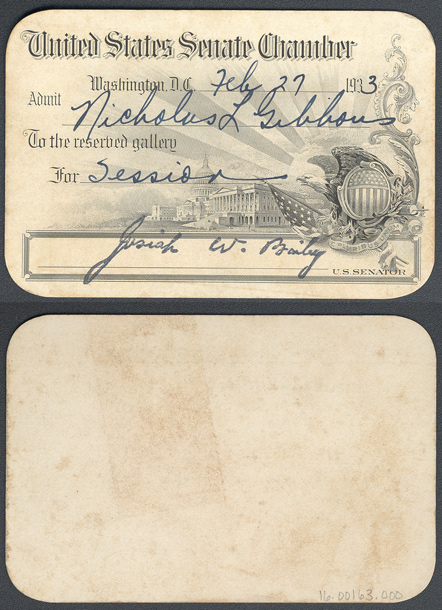 United States Senate Chamber
Washington, D.C. Feb 27 1933
Admit Nicholas L Gibbons
To the reserved gallery
For Session
Josiah W. Bailey
U.S. SENATOR
16.00163.000